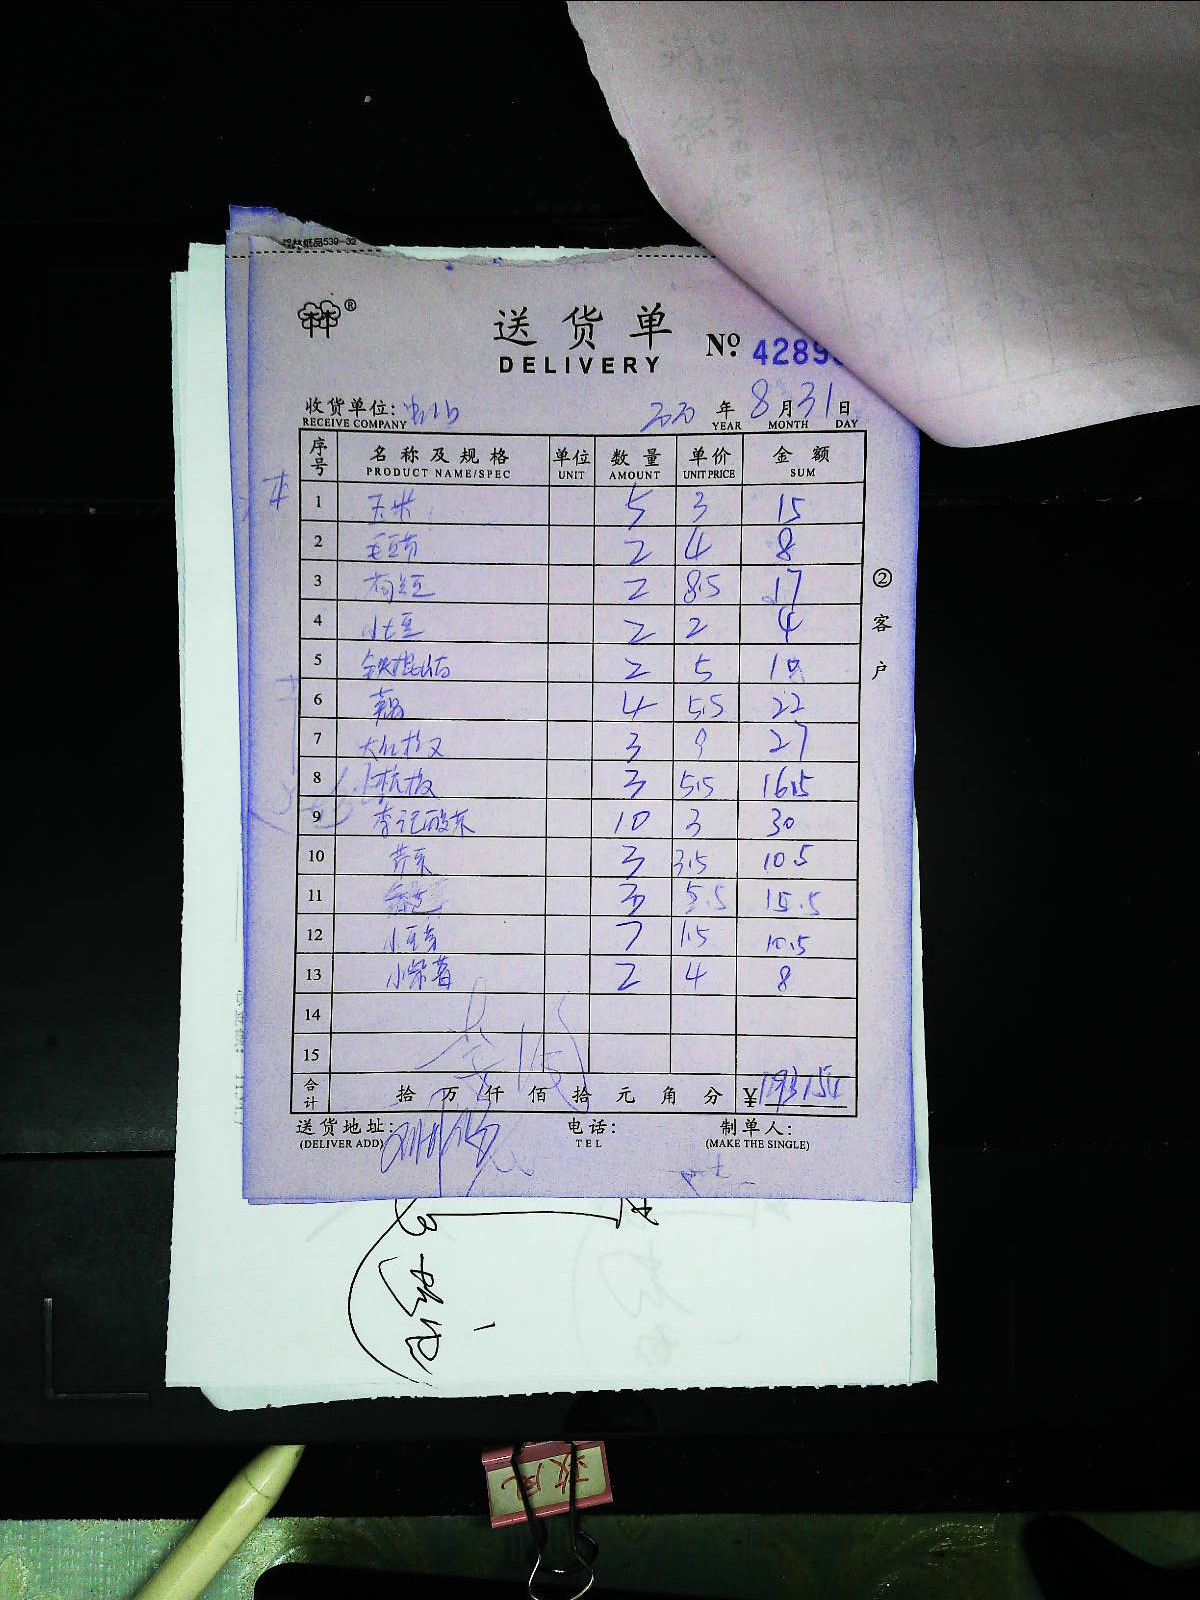 祥林纸品539-32
林®
送货单
DELIVERY
No 4289
收货单位:
RECEIVE COMPANY
2020 年 8 月 31 日
YEAR MONTH DAY
序号 名称及规格 单位 数量 单价 金额
PRODUCT NAME/SPEC UNIT AMOUNT UNIT PRICE SUM
1 玉米 5 3 15
2 毛豆节 2 4 8
3 荷兰豆 2 8.5 17
4 小土豆 2 2 4
5 铁棍山药 2 5 10
6 藕 4 5.5 22
7 大红椒 3 9 27
8 杭椒 3 5.5 16.5
9 李记酸菜 10 3 30
10 芹菜 3 3.5 10.5
11 3 5.5 15.5
12 小豆芽 7 1.5 10.5
13 小紫薯 2 4 8
14
15
合计 拾 万 仟 佰 拾 元 角 分 ¥
送货地址: 电话: 制单人:
(DELIVER ADD) TEL (MAKE THE SINGLE)
②客户